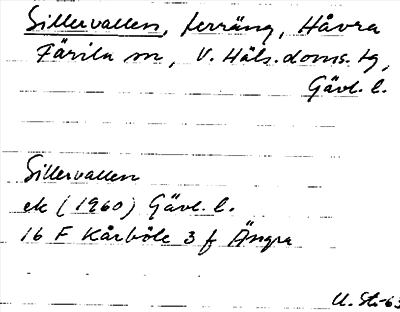 Sillervallen, terräng, Håvra
Färila sn, V. Häls. doms. tg,
Gävl. l.
Sillervallen
ek (1960) Gävl. l.
16 F Kårböle 3 f Ängra
U. St-63